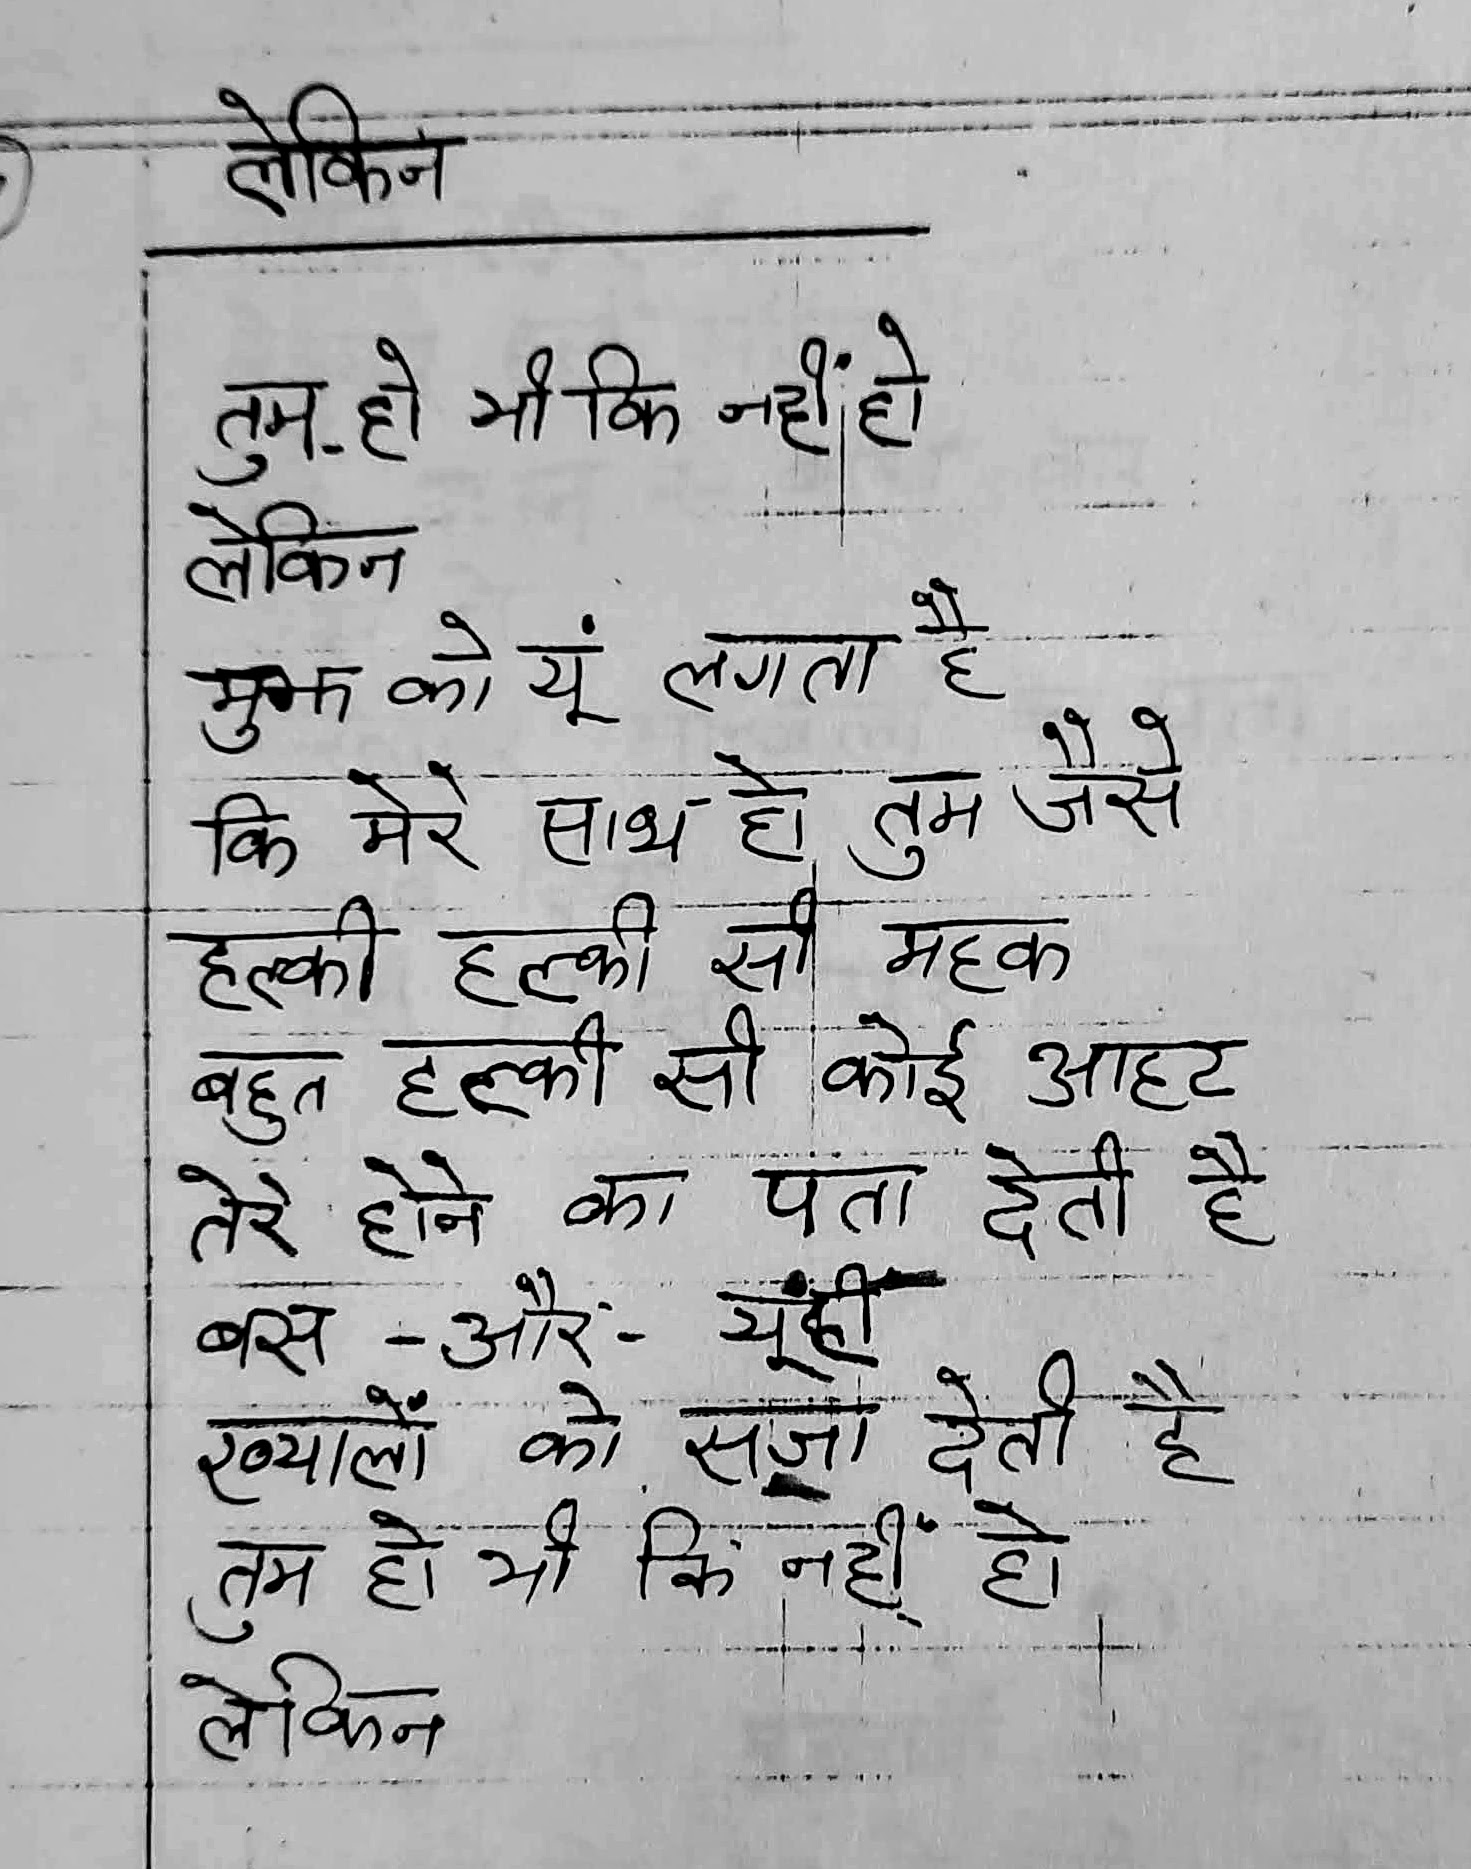 लेकिन
तुम हो भी कि नहीं हो
लेकिन
मुझ को यूं लगता है
कि मेरे साथ हो तुम जैसे
हल्की हल्की सी महक
बहुत हल्की सी कोई आहट
तेरे होने का पता देती है
बस - और - यूंही
ख्यालों को सजा देती है
तुम हो भी कि नहीं हो
लेकिन